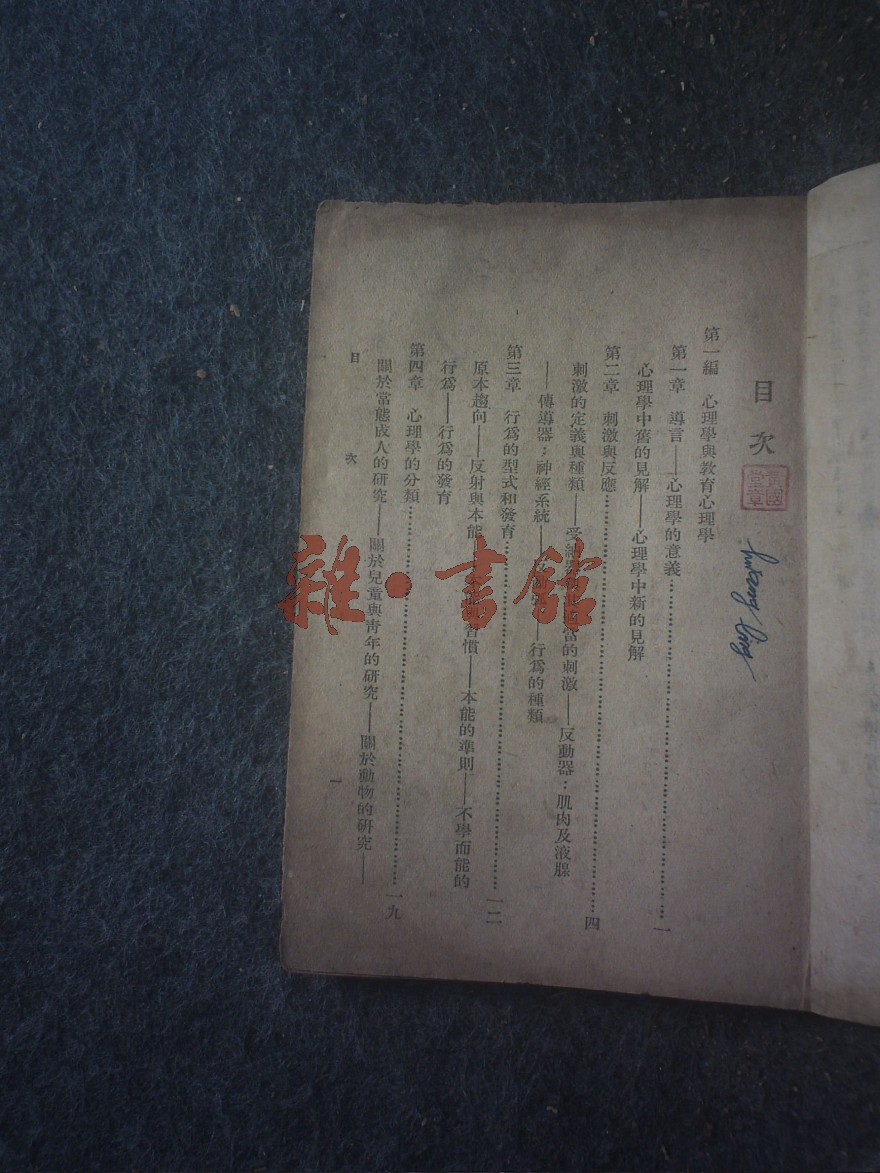 目次
第一編 心理學與教育心理學
第一章 導言——心理學的意義……一
心理學中舊的見解——心理學中新的見解
第二章 刺激與反應……四
刺激的定義與種類——受 當的刺激——反動器：肌肉及液腺
——傳導器；神經系統—— ——行爲的種類
第三章 行爲的型式和發育……一二
原本趨向——反射與本能 習慣——本能的準則——不學而能的
行爲——行爲的發育
第四章 心理學的分類……一九
關於常態成人的研究——關於兒童與靑年的研究——關於動物的研究——
目次
一
國堂章
雜·書館